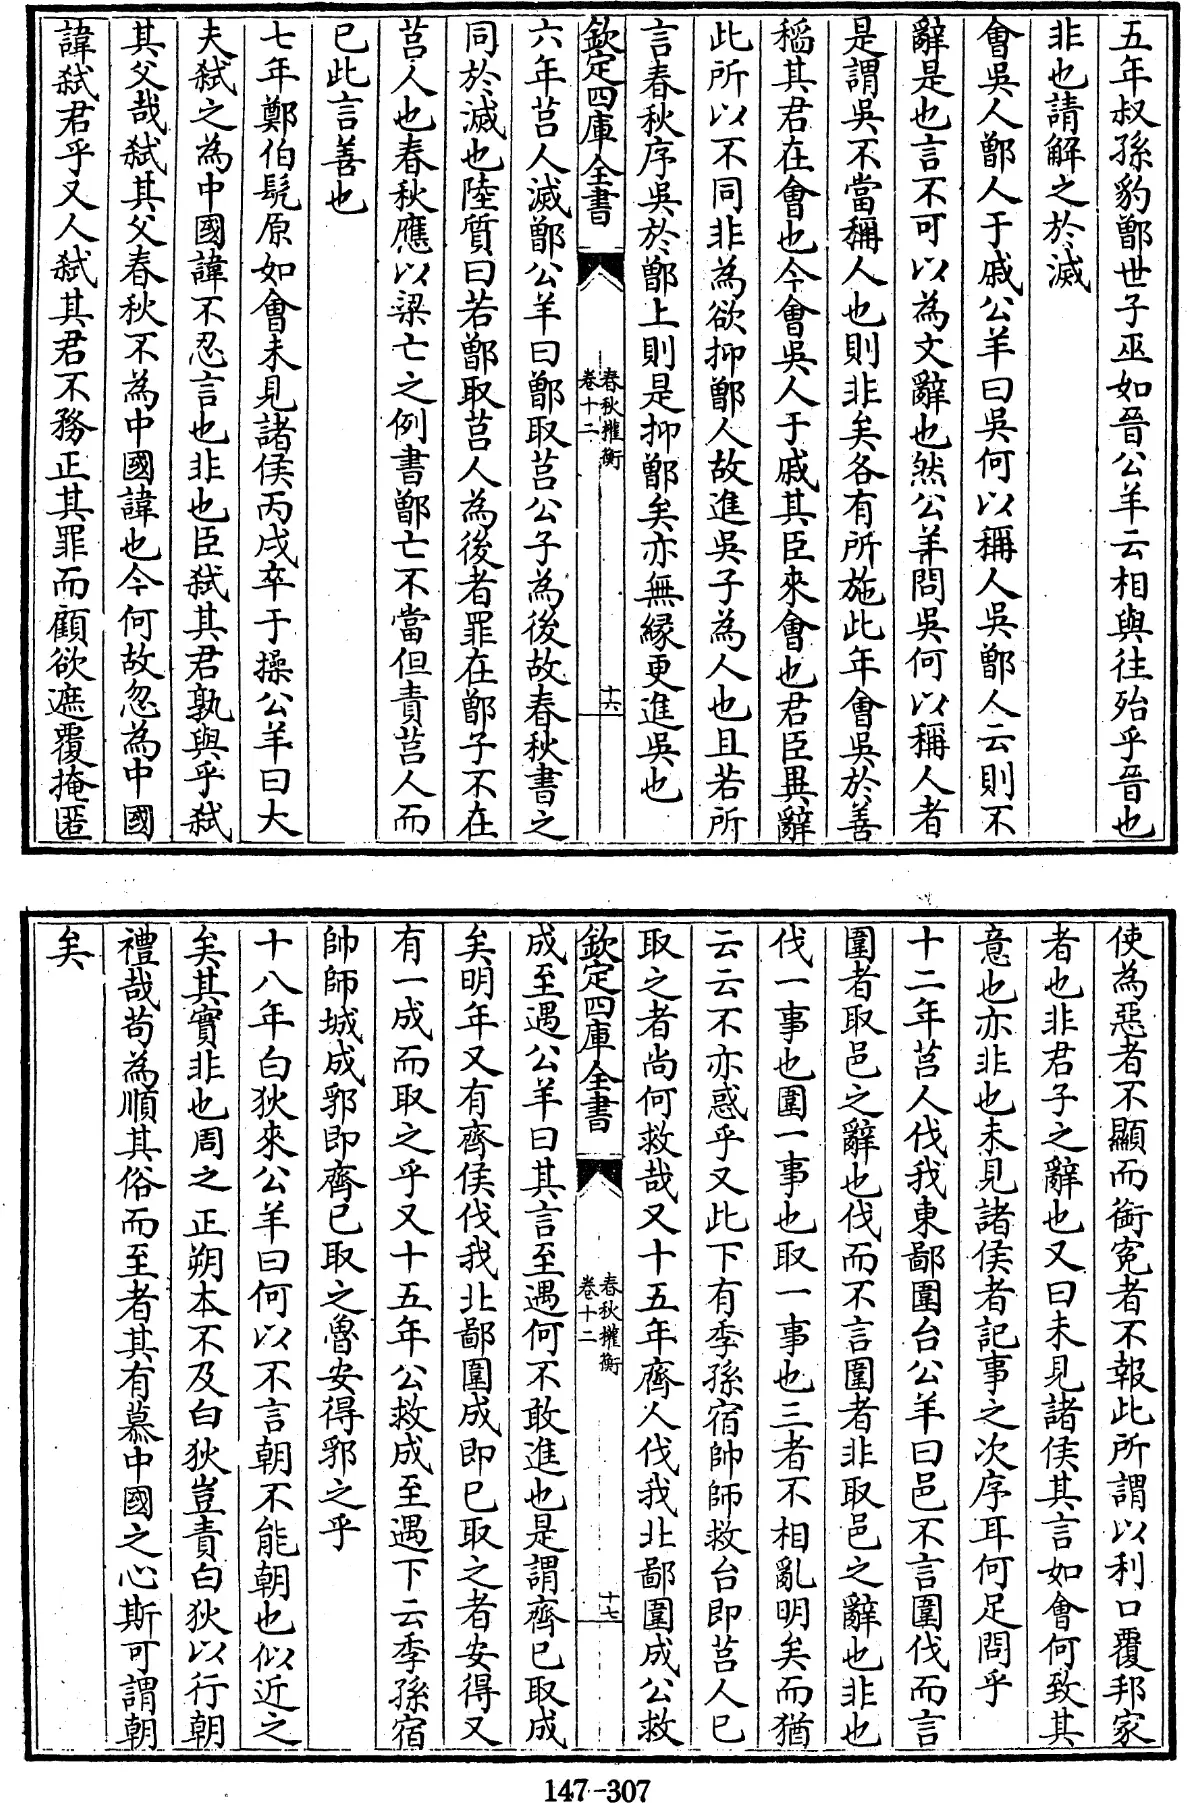 五年叔孫豹鄫世子巫如晉公羊云相與往殆乎晉也
非也請解之於滅
會吳人鄫人于戚公羊曰吳何以稱人吳鄫人云則不
辭是也言不可以為文辭也然公羊問吳何以稱人者
是謂吳不當稱人也則非矣各有所施此年會吳於善
稻其君在會也今會吳人于戚其臣來會也君臣異辭
此所以不同非為欲抑鄫人故進吳子為人也且若所
言春秋序吳於鄫上則是抑鄫矣亦無縁更進吳也
欽定四庫全書
春秋權衡
卷十二
十六
六年莒人滅鄫公羊曰鄫取莒公子為後故春秋書之
同於滅也陸質曰若鄫取莒人為後者罪在鄫子不在
莒人也春秋應以梁亡之例書鄫亡不當但責莒人而
已此言善也
七年鄭伯髡原如會未見諸侯丙戌卒于操公羊曰大
夫弑之為中國諱不忍言也非也臣弑其君孰與乎弑
其父哉弑其父春秋不為中國諱也今何故忽為中國
諱弑君乎又人弑其君不務正其罪而顧欲遮覆掩匿
使為惡者不顯而銜寃者不報此所謂以利口覆邦家
者也非君子之辭也又曰未見諸侯其言如會何致其
意也亦非也未見諸侯者記事之次序耳何足問乎
十二年莒人伐我東鄙圍台公羊曰邑不言圍伐而言
圍者取邑之辭也伐而不言圍者非取邑之辭也非也
伐一事也圍一事也取一事也三者不相亂明矣而猶
云云不亦惑乎又此下有季孫宿帥師救台即莒人已
取之者尚何救哉又十五年齊人伐我北鄙圍成公救
欽定四庫全書
春秋權衡
卷十二
十七
成至遇公羊曰其言至遇何不敢進也是謂齊已取成
矣明年又有齊侯伐我北鄙圍成即已取之者安得又
有一成而取之乎又十五年公救成至遇下云季孫宿
帥師城成郛即齊已取之魯安得郛之乎
十八年白狄來公羊曰何以不言朝不能朝也似近之
矣其實非也周之正朔本不及白狄豈責白狄以行朝
禮哉苟為順其俗而至者其有慕中國之心斯可謂朝
矣
147-307